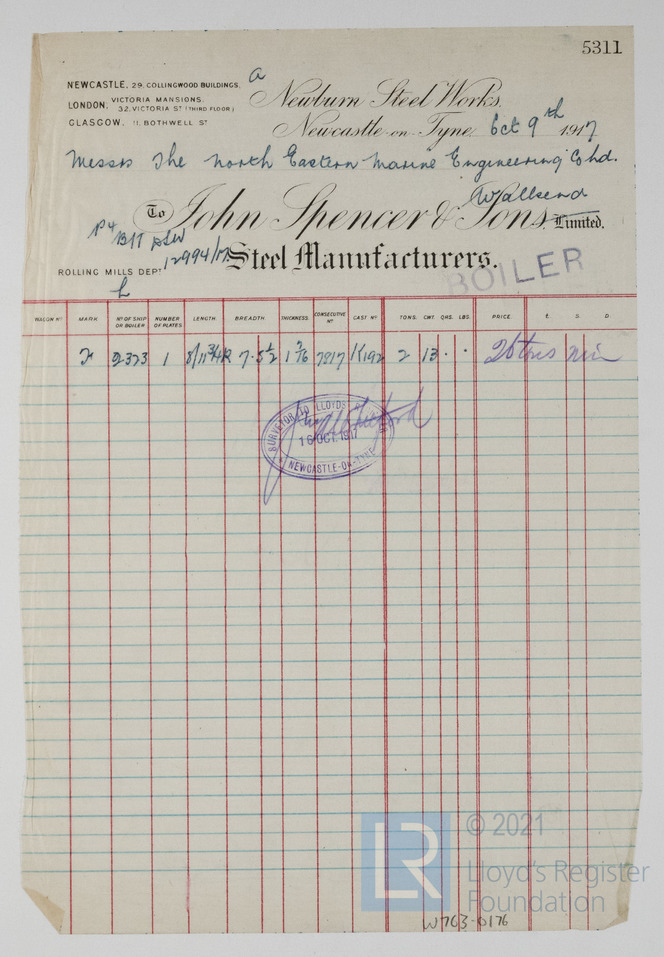 5311
NEWCASTLE, 29, COLLINGWOOD BUILDINGS.
LONDON, VICTORIA MANSIONS,
32, VICTORIA ST (THIRD FLOOR)
GLASGOW, 11, BOTHWELL ST
a
Newburn Steel Works,
Newcastle-on-Tyne, Oct 9th 1917
Messrs The North Eastern Marine Engineering Co Ltd.
Wallsend
To John Spencer & Sons, Limited,
12994/17
Steel Manufacturers.
ROLLING MILLS DEPT
BOILER
WAGON No MARK No OF SHIP OR BOILER NUMBER OF PLATES LENGTH BREADTH THICKNESS CONSECUTIVE No CAST No TONS. CWT. QRS. LBS. PRICE. £. S. D.
2323 1 7·5½ 7217 K192 2 13 · · 26 tons min
SURVEYOR TO LLOYDS REGISTER
16 OCT. 1917
NEWCASTLE-ON-TYNE
LR
© 2021
Lloyd's Register
Foundation
W763-0176